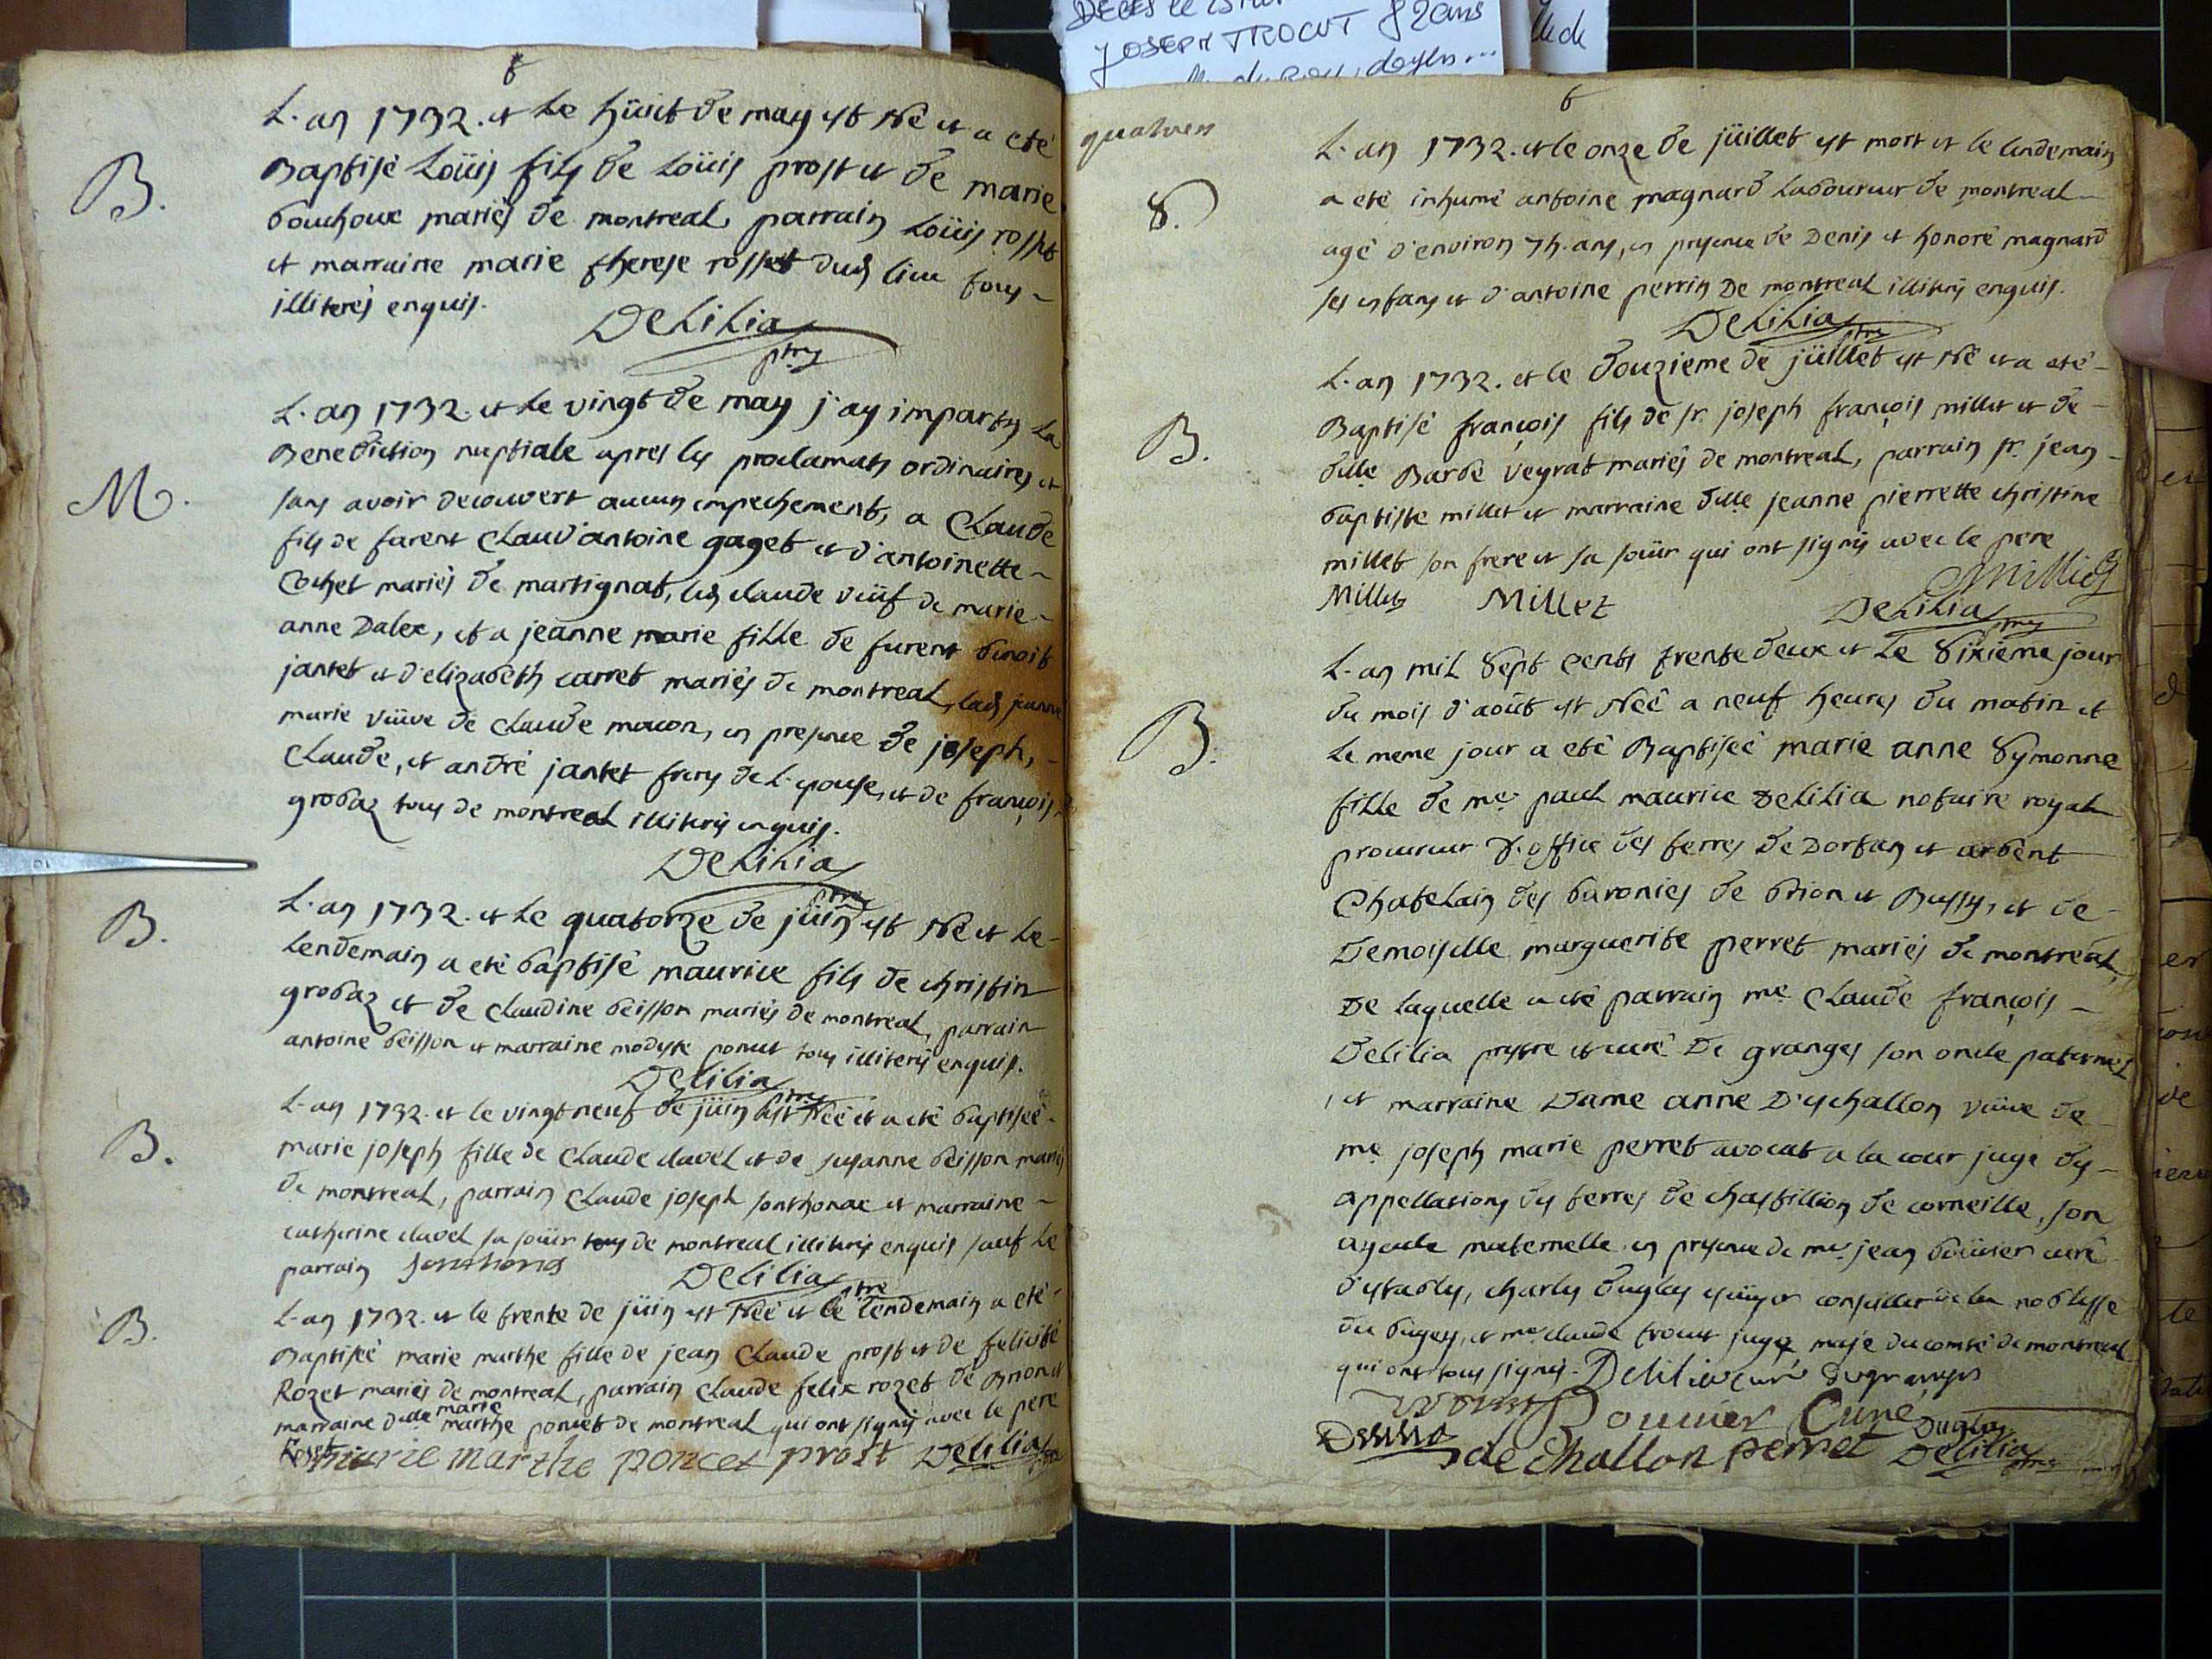 DECES le
JOSEPH TROCUT 82 ans
lle de
L'an 1732. et Le hüict de may est Né et a eté
B.
Baptisé Loüis fils de Loüis prost et de marie
bouchoux mariés de montreal parrain Loüis rosset
et marraine marie therese rosset dud lieu tous
illiterés enquis.
DeLiLia
ptre
L'an 1732. et Le vingt de may j'ay imparty La
M.
Benediction nuptiale apres les proclamats ordinaires et
sans avoir decouvert aucun empechements, a CLaude
fils de furent CLaud'antoine gaget et d'antoinette
Cochet mariés de martignat, led claude veüf de marie
anne Dalex, et a jeanne marie fille de furent benoit
jantet et d'elizabeth carret mariés de montreal, lad jeanne
marie veüve de CLaude macon, en presence de joseph,
CLaude, et andré jantet freres de L'epouse, et de françois
grobaz tous de montreal illiterés enquis.
DeLiLia
ptre
L'an 1732. et Le quatorze de jüin est Né et Le
B.
Lendemain a eté baptisé maurice fils de christin
grobaz et de CLaudine beisson mariés de montreal, parrain
antoine beisson et marraine modeste poncet tous illiterés enquis.
DeLiLia
ptre
L'an 1732. et le vingt neuf de jüin est Née et a eté baptiseé
B.
marie joseph fille de CLaude clavel et de susanne beisson mariés
de montreal, parrain CLaude joseph sonthonax et marraine
catherine clavel sa soeür tous de montreal illiterés enquis sauf le
parrain Sonthonas
DeLiLia ptre
L'an 1732. et le trente de jüin est Neé et le Lendemain a eté
B.
Baptiseé marie marthe fille de jean CLaude prost et de felicité
Rozet mariés de montreal, parrain CLaude felix rozet de Brion et
marraine dlle marie marthe poncet de montreal qui ont signés avec le pere
Roset marie marthe poncet prost DeLiLia ptre
L'an 1732. et le onze de jüillet est mort et le lendemain
S.
a eté inhumé antoine magnard Laboureur de montreal
agé d'environ 75. ans, en presence de Denis et honoré magnard
ses enfans et d'antoine perrin De montreal illiterés enquis.
DeLiLia ptre
L'an 1732. et le douzieme de jüillet est Né et a eté
B.
Baptisé françois fils de sr. joseph françois millet et de
dlle Barbe veyrat mariés de montreal, parrain sr. jean
baptiste millet et marraine dlle jeanne pierrette christine
millet son frere et sa soeür qui ont signés avec le pere
Millet Millet Millet
DeLiLia ptre
L'an miL Sept cents trente deux et Le Sixieme jour
B.
du mois d'aoüt est Neé a neuf heures du matin et
Le meme jour a eté Baptiseé marie anne Symonne
fille de me. paul maurice DeLiLia notaire royal
procureur d'office des terres De Dortan et arbent
ChateLain des baronies de brion et Bussy, et de
Demoiselle marguerite perret mariés de montréal,
De Laquelle a eté parrain me CLaude françois
DeliLia prestre et curé De granges son oncle paternel
, et marraine Dame anne D'echallon veüve de
me. joseph marie perret avocat a la cour juge des
appellations des terres de chastillion de corneille, son
ayeule maternelle en presence de mre jean boüvier curé
d'etables, charles duglas ecüyer conseiller de la noblesse
du bugey, et me claude trocut juge maje du comté de montreal
qui ont tous signés. DeLiLia curé de granges
Trocut Bouvier Curé Duglas
DeLiLia de Challon perret DeLiLia ptre